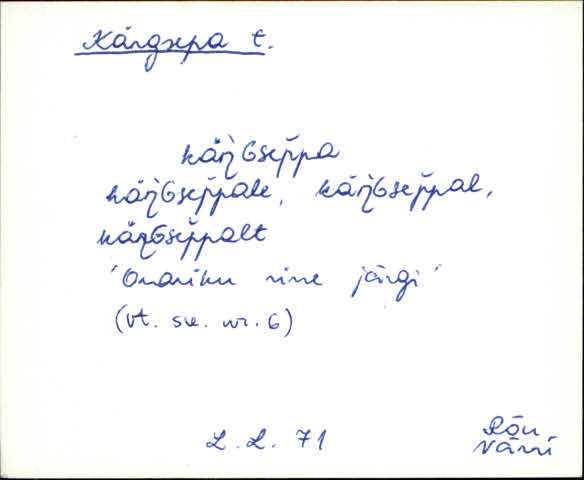 Kängsepa t.
käŋ̀Gsep̌pa
käŋ̀Gsep̌pale, käŋ̀Gsep̌pal,
käŋ̀Gsep̌palt
'Omaniku nime järgi'
(vt. sel. nr. 6)
L. L. 71
Rõu